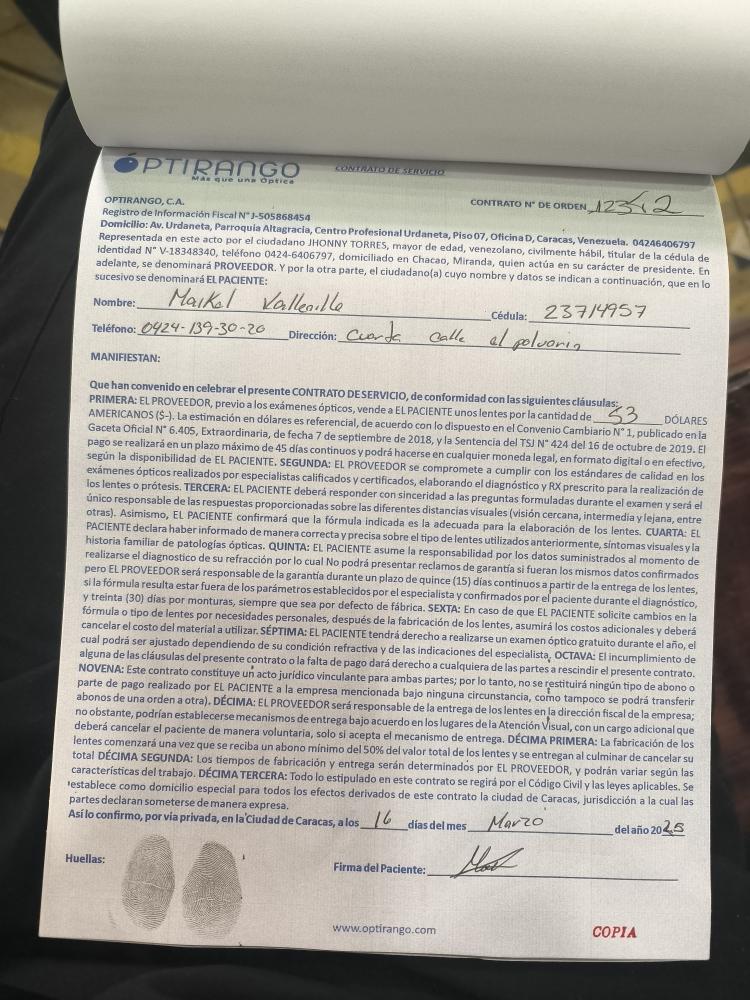 OPTIRANGO
Más que una Óptica
CONTRATO DE SERVICIO
OPTIRANGO, C.A.
CONTRATO N° DE ORDEN 12342
Registro de Información Fiscal N° J-505868454
Domicilio: Av. Urdaneta, Parroquia Altagracia, Centro Profesional Urdaneta, Piso 07, Oficina D, Caracas, Venezuela. 04246406797
Representada en este acto por el ciudadano JHONNY TORRES, mayor de edad, venezolano, civilmente hábil, titular de la cédula de
Identidad N° V-18348340, teléfono 0424-6406797, domiciliado en Chacao, Miranda, quien actúa en su carácter de presidente. En
adelante, se denominará PROVEEDOR. Y por la otra parte, el ciudadano(a) cuyo nombre y datos se indican a continuación, que en lo
sucesivo se denominará EL PACIENTE:
Nombre: Maikel Vallenilla Cédula: 23714957
Teléfono: 0424-139-30-20 Dirección: Cuarta calle el polvorin
MANIFIESTAN:
Que han convenido en celebrar el presente CONTRATO DE SERVICIO, de conformidad con las siguientes cláusulas:
PRIMERA: EL PROVEEDOR, previo a los exámenes ópticos, vende a EL PACIENTE unos lentes por la cantidad de 53 DÓLARES
AMERICANOS ($-). La estimación en dólares es referencial, de acuerdo con lo dispuesto en el Convenio Cambiario N° 1, publicado en la
Gaceta Oficial N° 6.405, Extraordinaria, de fecha 7 de septiembre de 2018, y la Sentencia del TSJ N° 424 del 16 de octubre de 2019. El
pago se realizará en un plazo máximo de 45 días continuos y podrá hacerse en cualquier moneda legal, en formato digital o en efectivo,
según la disponibilidad de EL PACIENTE. SEGUNDA: EL PROVEEDOR se compromete a cumplir con los estándares de calidad en los
exámenes ópticos realizados por especialistas calificados y certificados, elaborando el diagnóstico y RX prescrito para la realización de
los lentes o prótesis. TERCERA: EL PACIENTE deberá responder con sinceridad a las preguntas formuladas durante el examen y será el
único responsable de las respuestas proporcionadas sobre las diferentes distancias visuales (visión cercana, intermedia y lejana, entre
otras). Asimismo, EL PACIENTE confirmará que la fórmula indicada es la adecuada para la elaboración de los lentes. CUARTA: EL
PACIENTE declara haber informado de manera correcta y precisa sobre el tipo de lentes utilizados anteriormente, síntomas visuales y la
historia familiar de patologías ópticas. QUINTA: EL PACIENTE asume la responsabilidad por los datos suministrados al momento de
realizarse el diagnostico de su refracción por lo cual No podrá presentar reclamos de garantía si fueran los mismos datos confirmados
pero EL PROVEEDOR será responsable de la garantía durante un plazo de quince (15) días continuos a partir de la entrega de los lentes,
si la fórmula resulta estar fuera de los parámetros establecidos por el especialista y confirmados por el paciente durante el diagnóstico,
y treinta (30) días por monturas, siempre que sea por defecto de fábrica. SEXTA: En caso de que EL PACIENTE solicite cambios en la
fórmula o tipo de lentes por necesidades personales, después de la fabricación de los lentes, asumirá los costos adicionales y deberá
cancelar el costo del material a utilizar. SÉPTIMA: EL PACIENTE tendrá derecho a realizarse un examen óptico gratuito durante el año, el
cual podrá ser ajustado dependiendo de su condición refractiva y de las indicaciones del especialista. OCTAVA: El incumplimiento de
alguna de las cláusulas del presente contrato o la falta de pago dará derecho a cualquiera de las partes a rescindir el presente contrato.
NOVENA: Este contrato constituye un acto jurídico vinculante para ambas partes; por lo tanto, no se restituirá ningún tipo de abono o
parte de pago realizado por EL PACIENTE a la empresa mencionada bajo ninguna circunstancia, como tampoco se podrá transferir
abonos de una orden a otra). DÉCIMA: EL PROVEEDOR será responsable de la entrega de los lentes en la dirección fiscal de la empresa;
no obstante, podrían establecerse mecanismos de entrega bajo acuerdo en los lugares de la Atención Visual, con un cargo adicional que
deberá cancelar el paciente de manera voluntaria, solo si acepta el mecanismo de entrega. DÉCIMA PRIMERA: La fabricación de los
lentes comenzará una vez que se reciba un abono mínimo del 50% del valor total de los lentes y se entregan al culminar de cancelar su
total DÉCIMA SEGUNDA: Los tiempos de fabricación y entrega serán determinados por EL PROVEEDOR, y podrán variar según las
características del trabajo. DÉCIMA TERCERA: Todo lo estipulado en este contrato se regirá por el Código Civil y las leyes aplicables. Se
establece como domicilio especial para todos los efectos derivados de este contrato la ciudad de Caracas, jurisdicción a la cual las
partes declaran someterse de manera expresa.
Así lo confirmo, por via privada, en la Ciudad de Caracas, a los 16 días del mes Marzo del año 2025
Huellas:
Firma del Paciente:
www.optirango.com
COPIA